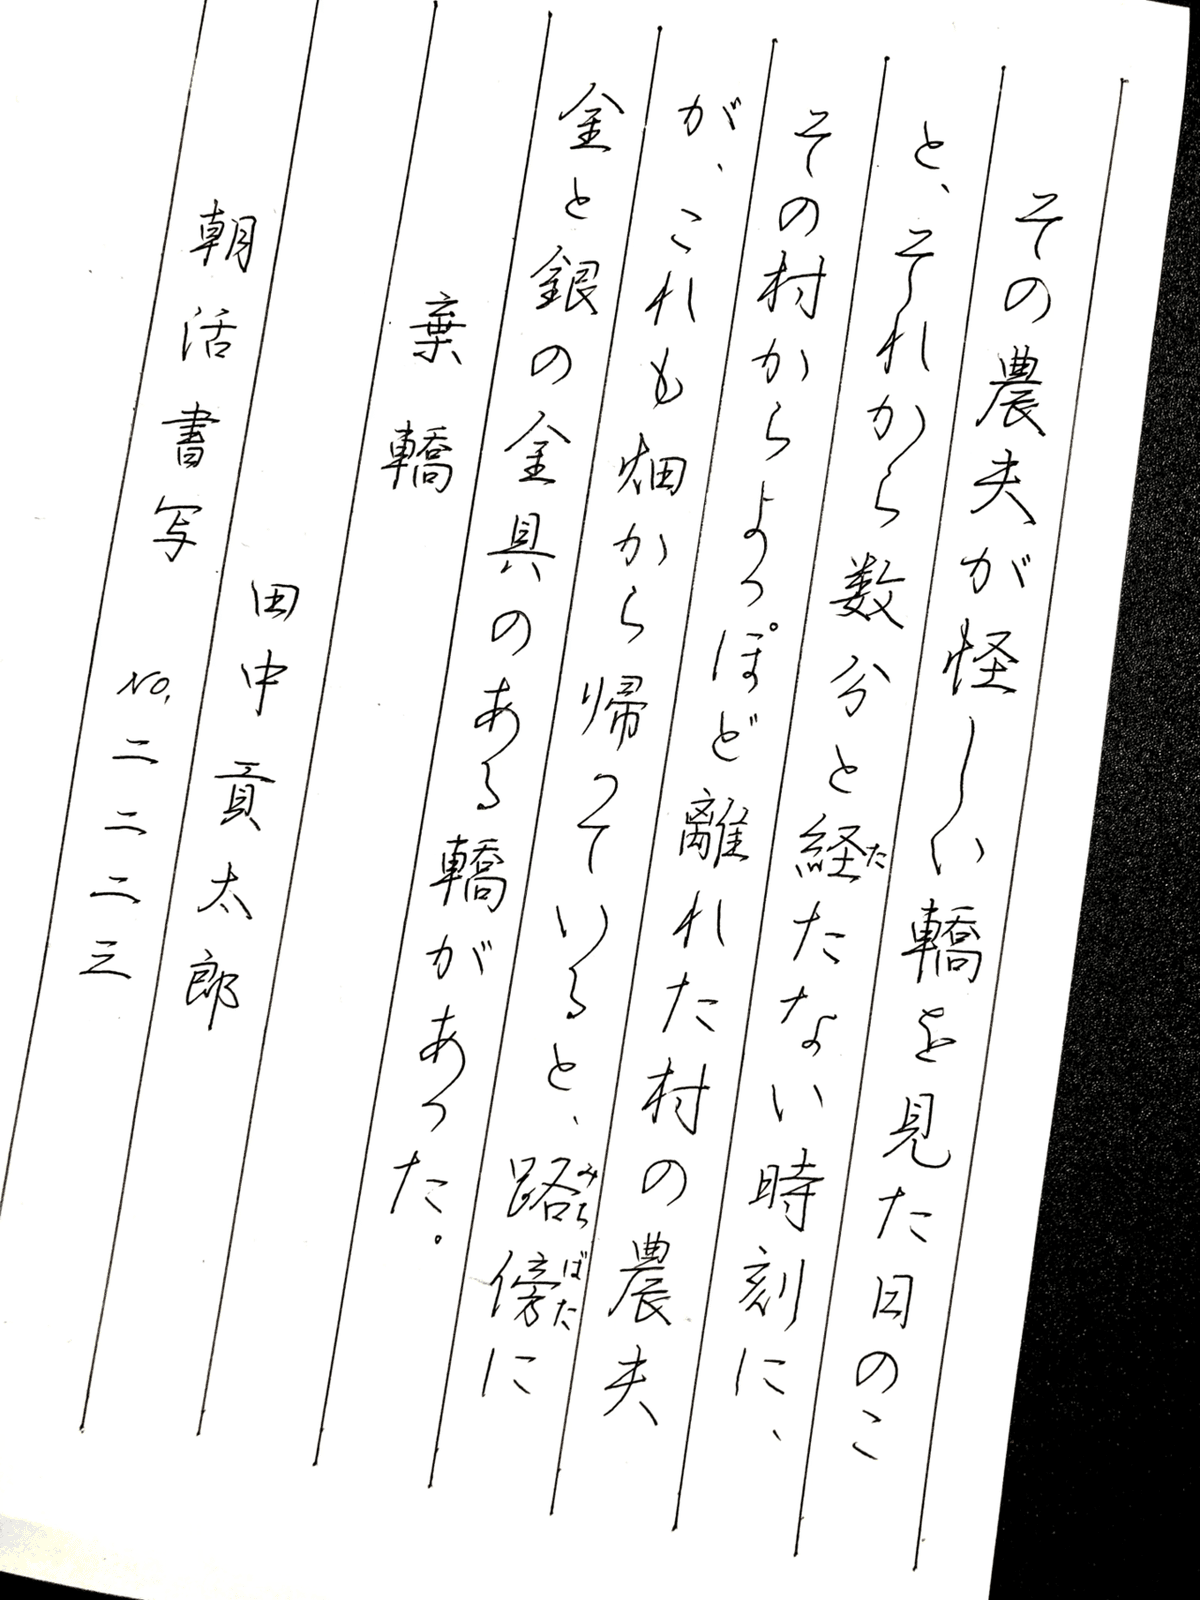 その農夫が怪しい轎を見た日のこ
と、それから数分と経たない時刻に、
その村からよっぽど離れた村の農夫
が、これも畑から帰っていると、路傍に
金と銀の金具のある轎があった。
棄轎
田中貢太郎
朝活書写 No.二二二三